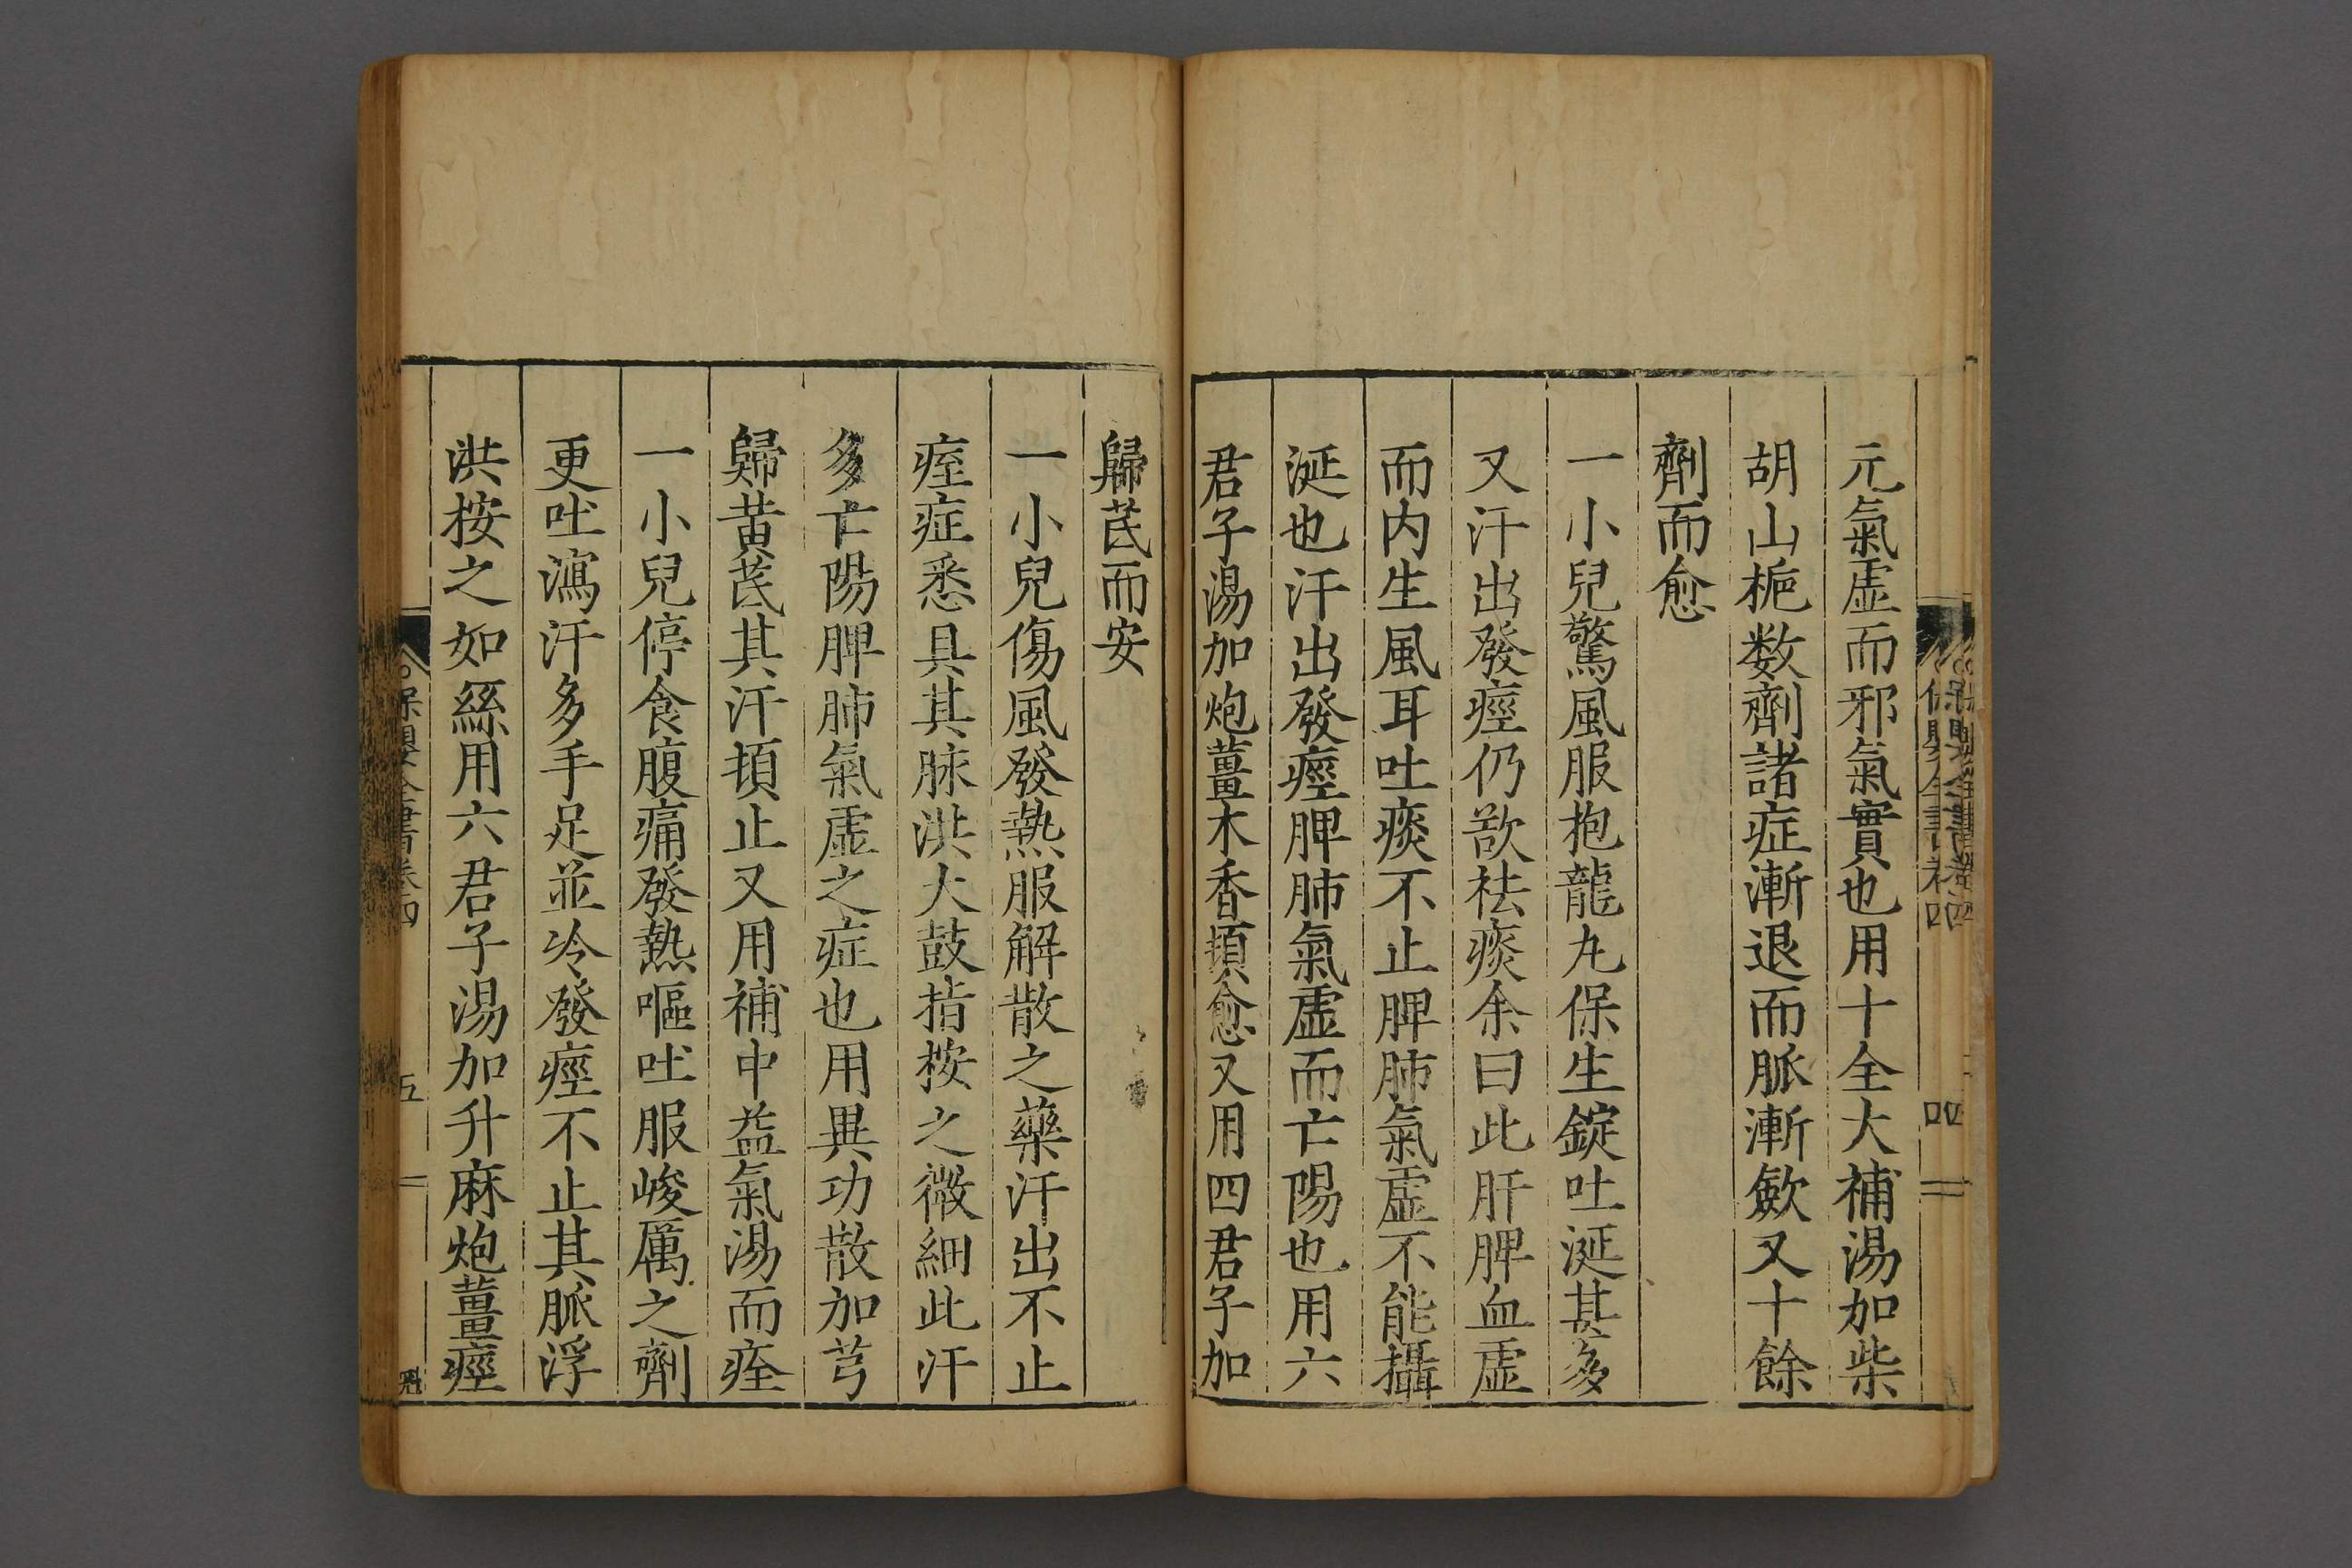 元氣虛而邪氣實也用十全大補湯加柴
胡山梔数劑諸症漸退而脈漸斂又十餘
劑而愈
一小兒驚風服抱龍丸保生錠吐涎甚多
又汗出發痙仍欲祛痰余曰此肝脾血虛
而内生風耳吐痰不止脾肺氣虛不能攝
涎也汗出發痙脾肺氣虛而亡陽也用六
君子湯加炮薑木香頓愈又用四君子加
歸芪而安
一小兒傷風發熱服解散之藥汗出不止
痓症悉具其脉洪大鼓指按之微細此汗
多亡陽脾肺氣虛之症也用異功散加芎
歸黃芪其汗頓止又用補中益氣湯而痊
一小兒停食腹痛發熱嘔吐服峻厲之劑
更吐瀉汗多手足並冷發痙不止其脈浮
洪按之如絲用六君子湯加升麻炮薑痙
保嬰全書卷四
五